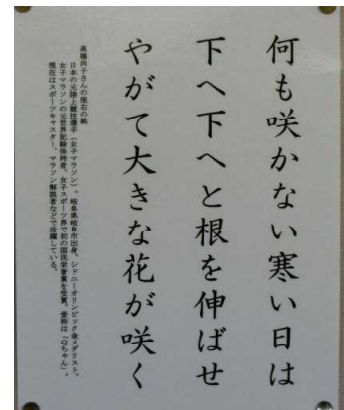 何も咲かない寒い日は
下へ下へと根を伸ばせ
やがて大きな花が咲く
高橋尚子さんの座右の銘
日本の元陸上競技選手（女子マラソン）、岐阜県岐阜市出身。シドニーオリンピック金メダリスト、
女子マラソンの元世界記録保持者。女子スポーツ界で初の国民栄誉賞を受賞。愛称は「Qちゃん」。
現在はスポーツキャスター、マラソン解説者などで活躍している。